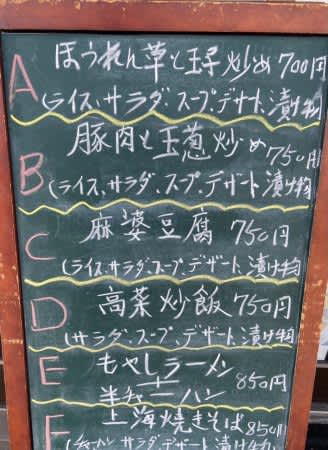 A ほうれん草と玉子炒め 700円
(ライス、サラダ、スープ、デザート、漬け物
B 豚肉と玉葱炒め 750円
(ライス、サラダ、スープ、デザート、漬け物
C 麻婆豆腐 750円
(ライス、サラダ、スープ、デザート、漬け物
D 高菜炒飯 750円
(サラダ、スープ、デザート、漬け物
E もやしラーメン
+
半チャーハン 850円
F 上海焼きそば 850円
サラダ、デザート、漬け物